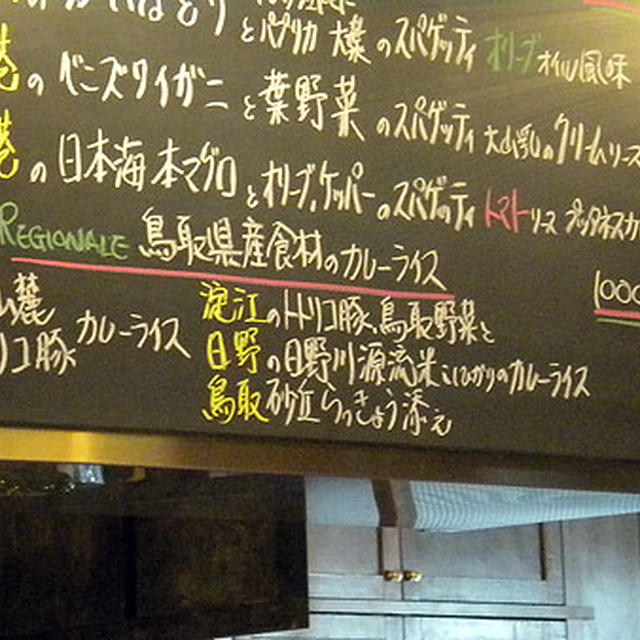 とパプリカ 大葉のスパゲッティ オリーブオイル風味
港のべにズワイガニと葉野菜のスパゲッティ 大山乳のクリームソース
港の日本海本マグロとオリーブ、ケッパーのスパゲッティ トマトソース プッタネスカ
REGIONALE 鳥取県産食材のカレーライス
1000
山麓
リコ豚 カレーライス
淀江のトリコ豚、鳥取野菜と
日野の日野川源流米こしひかりのカレーライス
鳥取砂丘らっきょう添え